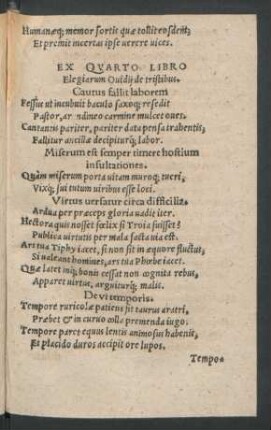 Humanæq; memor sortis quæ tollit eosdem,
Et premit incertas ipse verere vices.
EX QVARTO LIBRO
Elegiarum Ouidij de tristibus.
Cantus fallit laborem
Fessus ut incubuit baculo saxoq; resedit
Pastor, arundineo carmine mulcet oues.
Cantantis pariter, pariter data pensa trahentis,
Fallitur ancillæ decipiturq; labor.
Miserum est semper timere hostium
insultationes.
Quàm miserum porta uitam muroq; tueri,
Vixq; sui tutum uiribus esse loci.
Virtus uersatur circa difficilia.
Ardua per præceps gloria uadit iter.
Hectora quis nosset fœlix si Troia fuisset?
Publica uirtutis per mala facta uia est.
Ars tua Tiphy iacet, si non sit in æquore fluctus,
Si ualeant homines, ars tua Phœbe iacet.
Quæ latet inq; bonis cessat non cognita rebus,
Apparet uirtus, arguiturq; malis.
De vi temporis.
Tempore ruricolæ patiens fit taurus aratri,
Præbet & incuruo colla premenda iugo:
Tempore paret equus lentis animosus habenis,
Et placido duros accipit ore lupos.
Tempo-